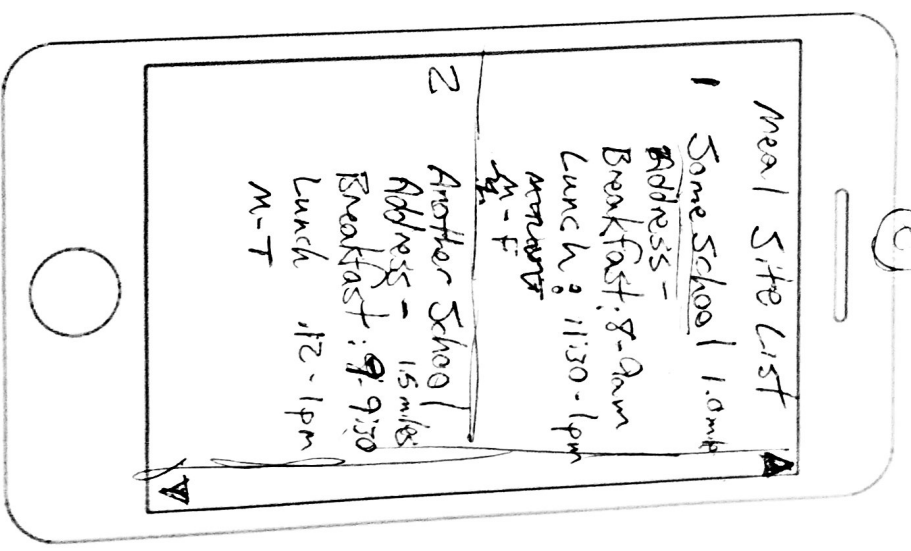 Meal Site List
1 Some School 1.0 mile
Address -
Breakfast: 8-9am
Lunch: 11:30-1pm
M-F
2 Another School
Address - 1.5 miles
Breakfast: 9-9:30
Lunch 12-1pm
M-T